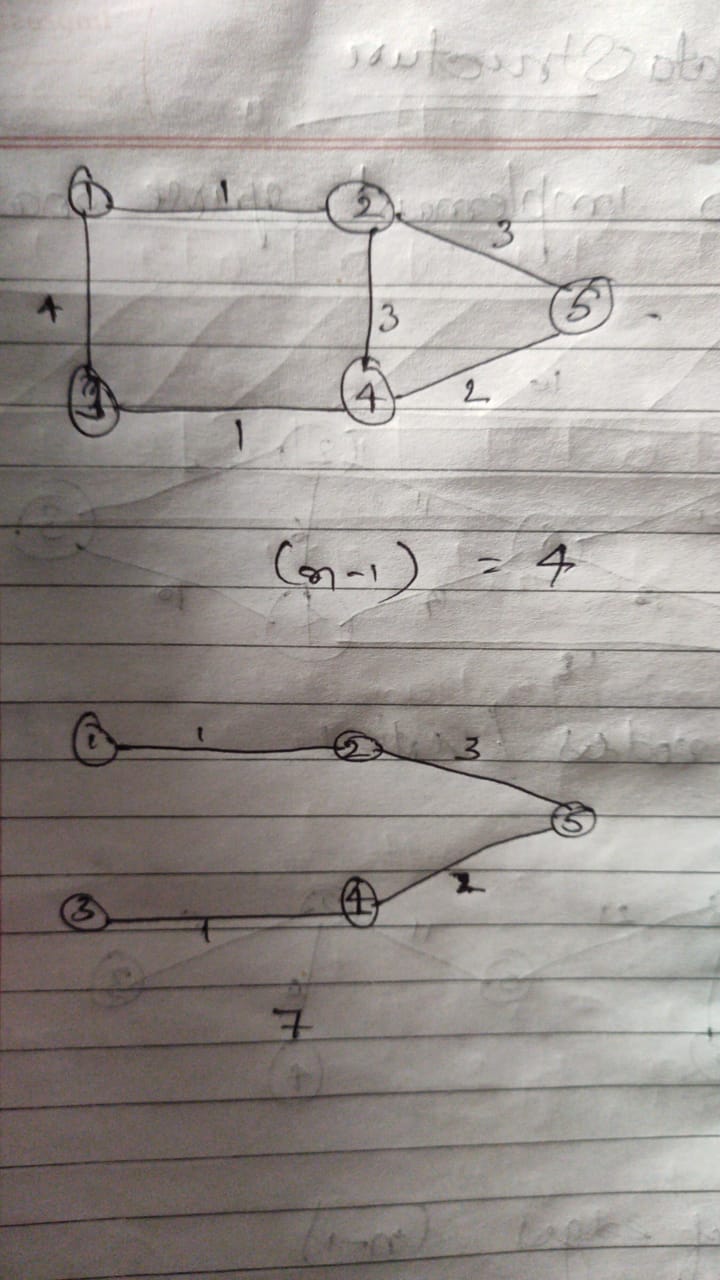 1 1 2
3
4 3 5
3 4 2
1
(n-1) = 4
1 1 2 3
5
3 4 2
1
7